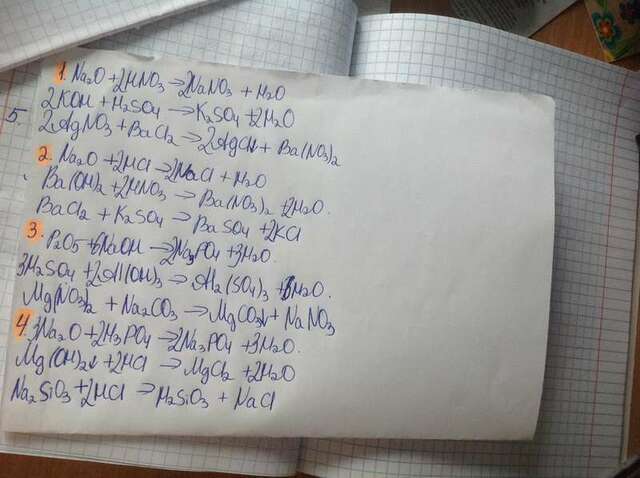 1. Na₂O + 2HNO₃ → 2NaNO₃ + H₂O
2KOH + H₂SO₄ → K₂SO₄ + 2H₂O
5. 2AgNO₃ + BaCl₂ → 2AgCl + Ba(NO₃)₂
2. Na₂O + 2HCl → 2NaCl + H₂O
Ba(OH)₂ + 2HNO₃ → Ba(NO₃)₂ + 2H₂O.
BaCl₂ + K₂SO₄ → BaSO₄ + 2KCl
3. P₂O₅ + 6NaOH → 2Na₃PO₄ + 3H₂O.
3H₂SO₄ + 2Al(OH)₃ → Al₂(SO₄)₃ + 6H₂O.
Mg(NO₃)₂ + Na₂CO₃ → MgCO₃↓ + NaNO₃
4. 3Na₂O + 2H₃PO₄ → 2Na₃PO₄ + 3H₂O.
Mg(OH)₂↓ + 2HCl → MgCl₂ + 2H₂O
Na₂SiO₃ + 2HCl → H₂SiO₃ + NaCl